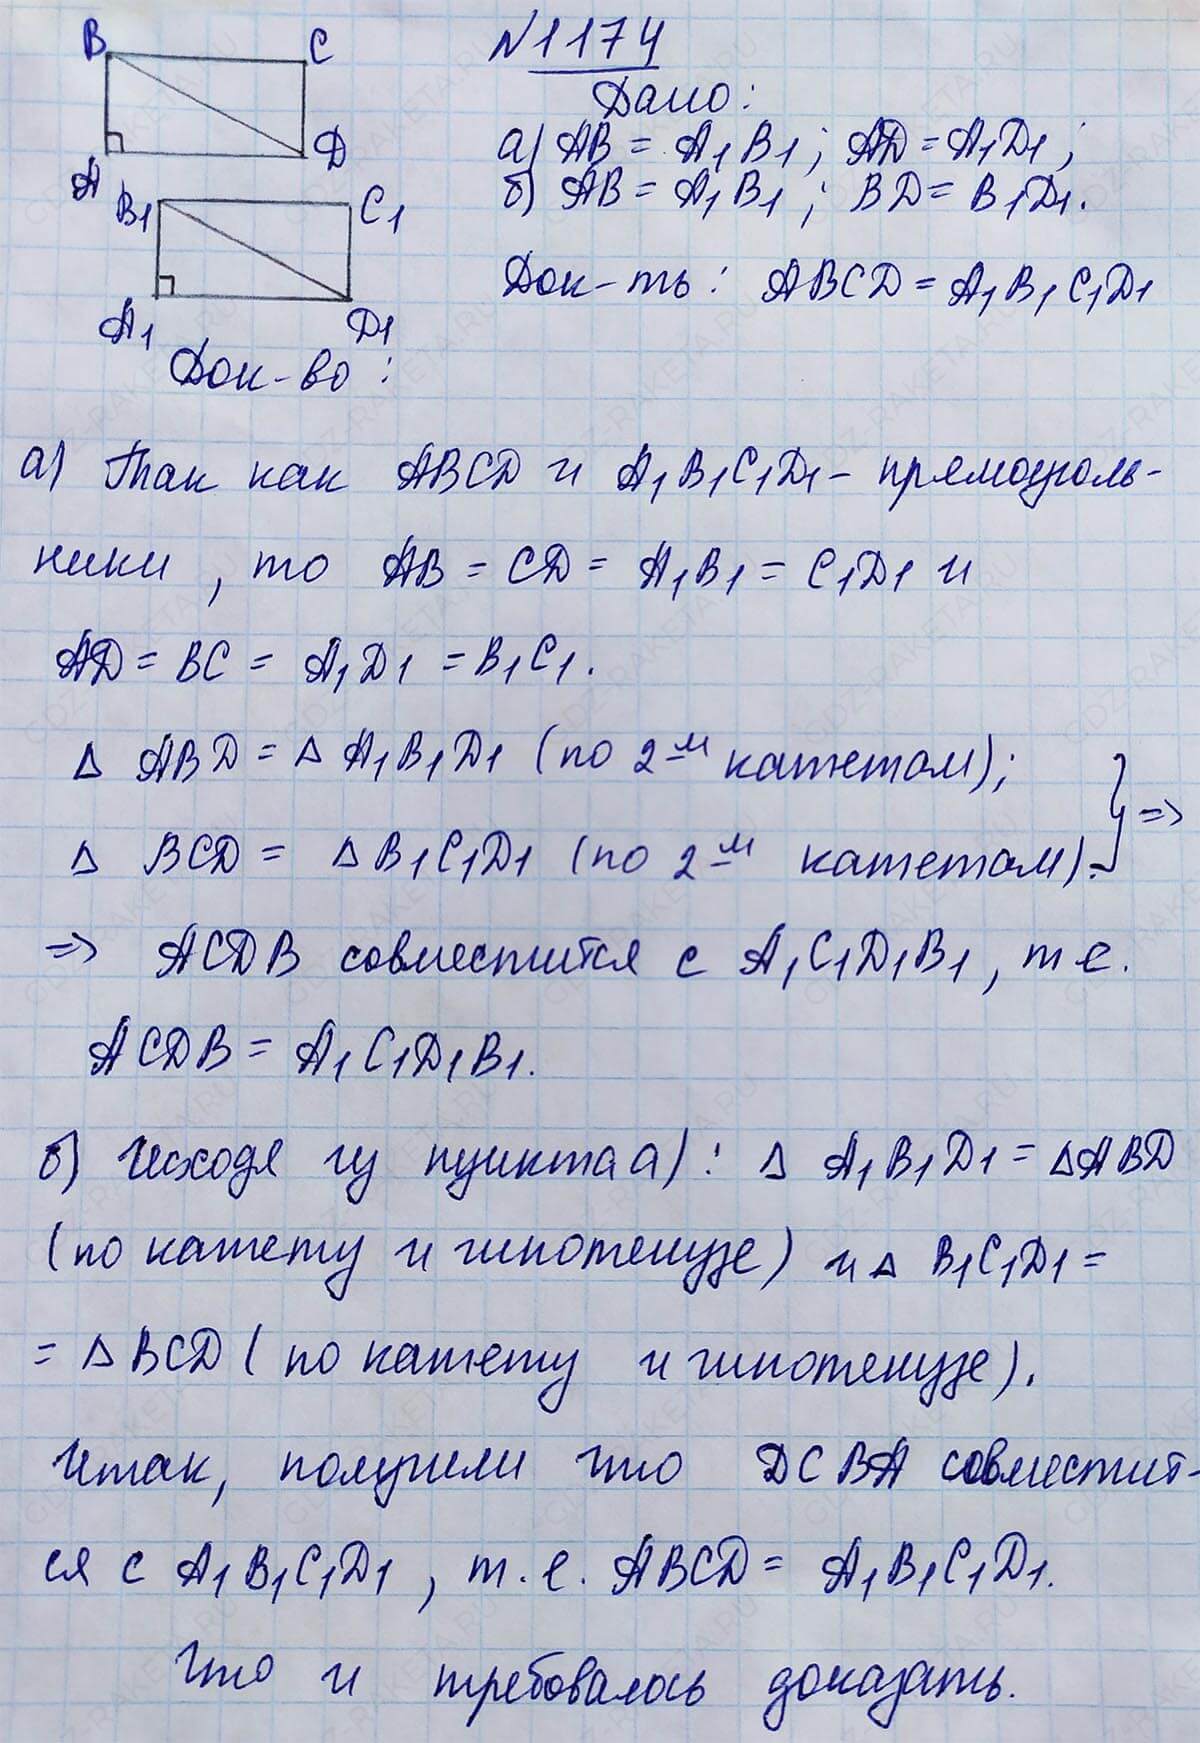 N1174
B C
Дано:
A D
а) AB = A1B1; AD = A1D1;
B1 C1
б) AB = A1B1; BD = B1D1.
A1 D1
Док-ть: ABCD = A1B1C1D1
Док-во:
а) Так как ABCD и A1B1C1D1 - прямоуголь-
ники, то AB = CD = A1B1 = C1D1 и
AD = BC = A1D1 = B1C1.
Δ ABD = Δ A1B1D1 (по 2-м катетам);
Δ BCD = Δ B1C1D1 (по 2-м катетам). } =>
=> ACDB совместится с A1C1D1B1, т е.
ACDB = A1C1D1B1.
б) Исходя из пункта а): Δ A1B1D1 = ΔABD
(по катету и гипотенузе) и Δ B1C1D1 =
= Δ BCD (по катету и гипотенузе).
Итак, получили что DCBA совместит-
ся с A1B1C1D1, т.е. ABCD = A1B1C1D1.
Что и требовалось доказать.
GDZ-RAKETA.RU